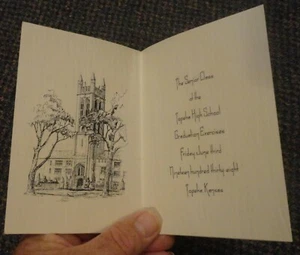 The Senior Class
of the
Topeka High School
Graduation Exercises
Friday June third
Nineteen hundred thirty eight
Topeka Kansas